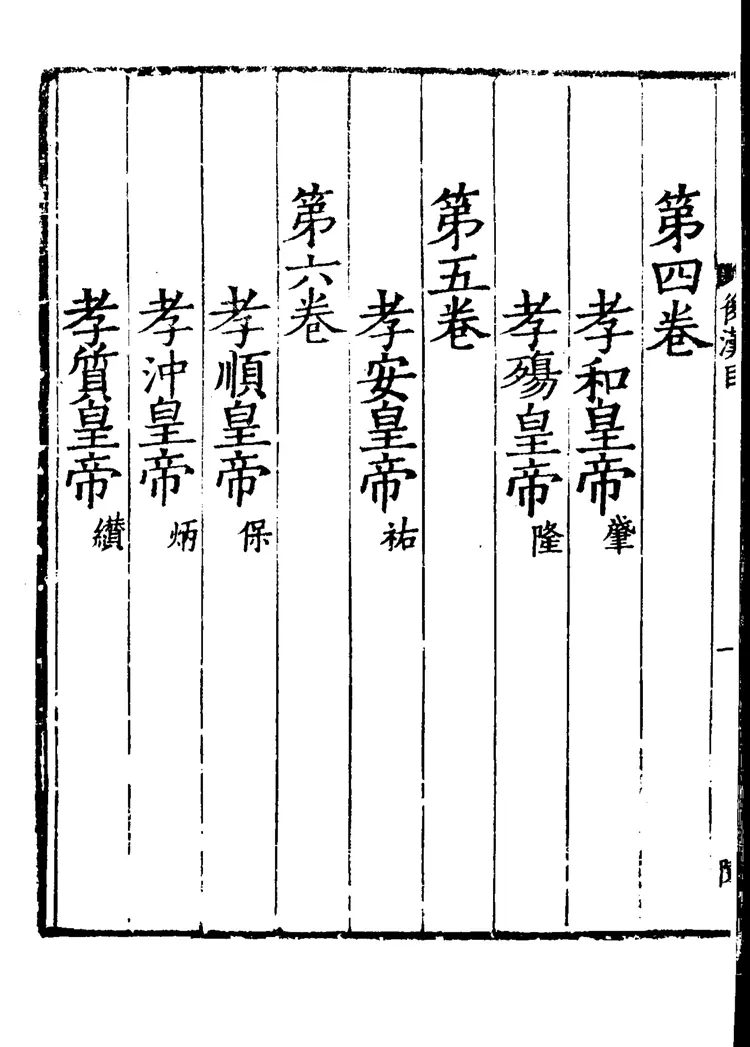 第四卷
孝和皇帝肇
孝殤皇帝隆
第五卷
孝安皇帝祜
第六卷
孝順皇帝保
孝沖皇帝炳
孝質皇帝纘
後漢目
一